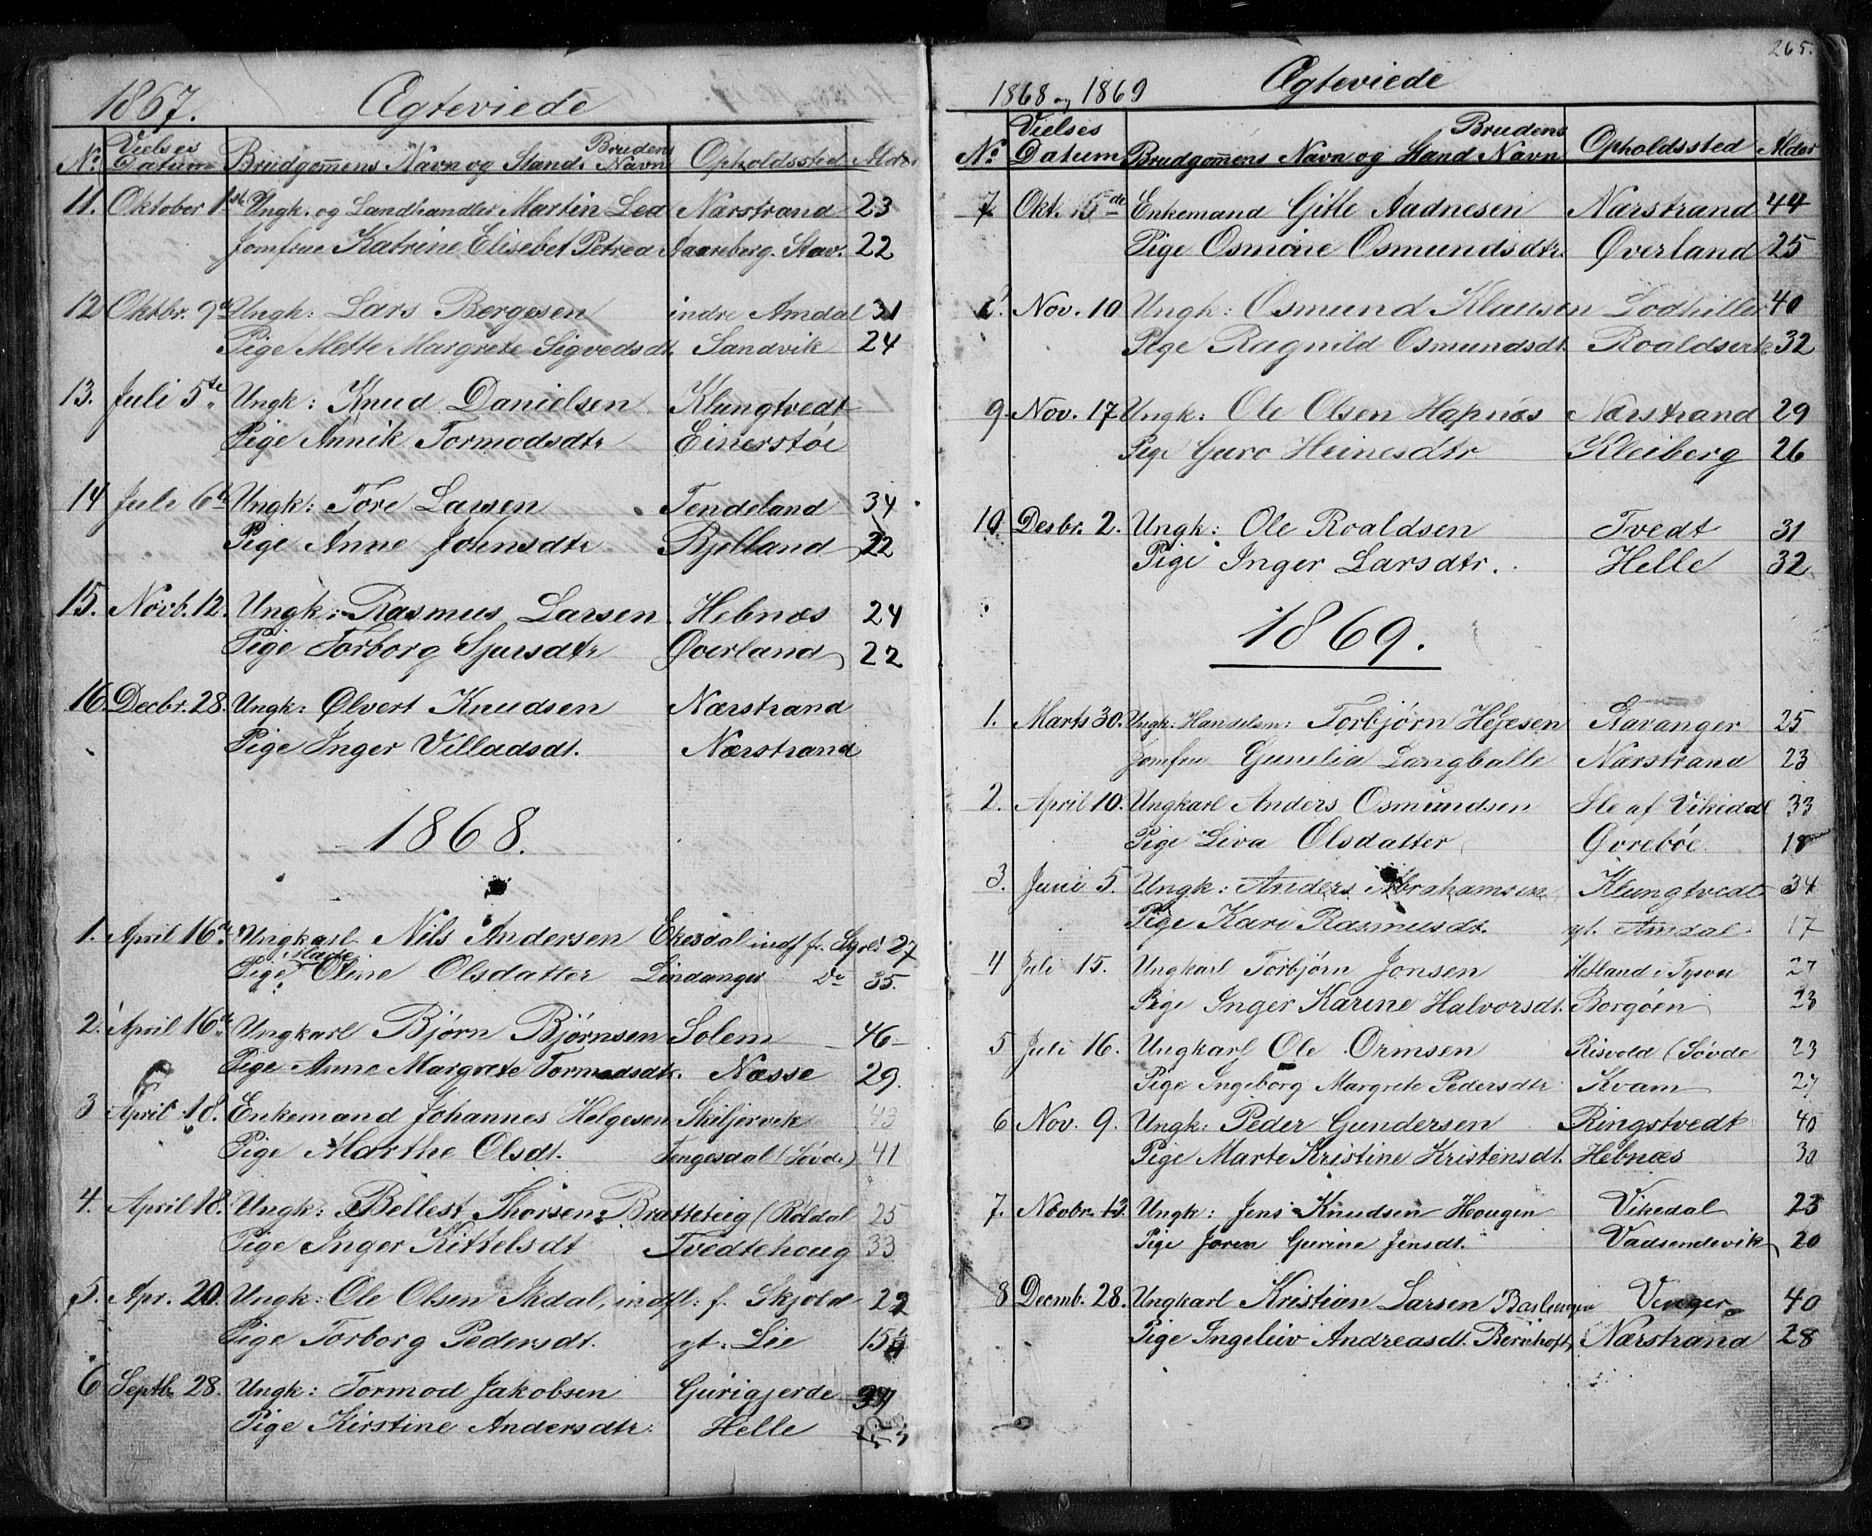 1867. Ægteviede
No. Vielses Datum Brudgommens Navn og Stand. Brudens Navn Opholdssted Alder
11. Oktober 1ste Ungk. og Landhandler Martin Lea Nærstrand 23
Jomfrue Katrine Elisebet Petrea Aareberg. Stav. 22
12 Oktbr. 9de Ungk: Lars Bergesen indre Amdal 31
Pige Mette Margrete Sigvedsdt. Sandvik 24
13. Juli 5te Ungk: Knud Danielsen Klungtvedt
Pige Annik Tormodsdtr Einerstøe
14 Juli 6te Ungk: Tore Larsen Tendeland 34
Pige Anne Johnsdtr Bjelland 22
15. Novb. 12. Ungk: Rasmus Larsen Hebnæs 24
Pige Torborg Sjursdtr Øverland 22
16 Decbr. 28. Ungk: Ølvert Knudsen Nærstrand
Pige Inger Villadsdt. Nærstrand
1868.
1. April 16de Ungkarl Nils Andersen Ekesdal indf fr. Skjold 27
Pige Marte Oline Olsdatter Lindanger Do 35.
2. April 16de Ungkarl Bjørn Bjørnsen Solem 46
Pige Anne Margrete Tormodsdtr. Næsse 29.
3 April 18. Enkemand Johannes Helgesen Skiljervik 43
Pige Marthe Olsdt. Tengesdal (Søvde) 41
4. April 18. Ungk: Bellest Thorsen Bratteteig (Røldal 25
Pige Inger Kittelsdt Tvedtehoug 33
5. Apr. 20. Ungk: Ole Olsen Ikdal, indfl: f. Skjold 22
Pige Torborg Pedersdt. yt. Lie
6 Septb. 28. Ungk: Tormod Jakobsen Gurigjerde
Pige Kirstine Andersdtr. Helle
265.
1868 og 1869 Ægteviede
No. Vielses Datum Brudgommens Navn og Stand Brudens Navn Opholdssted Alder
7 Okt. 15de Enkemand Gitle Aadnesen Nærstrand 44
Pige Osmine Osmundsdtr. Øverland 25
8. Nov. 10 Ungk: Osmund Klausen Lodhiller 40
Pige Ragnild Osmundsdt. Roaldserk 32
9. Nov. 17 Ungk: Ole Olsen Hapnæs Nærstrand 29
Pige Guro Heinesdtr Kleiberg 26
10 Desbr. 2. Ungk: Ole Roaldsen Tvedt 31
Pige Inger Larsdtr. Helle 32
1869.
1. Marts 30. Ungk: Handelsm: Torbjørn Hejesen Stavanger 25
Jomfru Gunilia Langballe Nærstrand 23
2. April 10. Ungkarl Anders Osmundsen Øle af Vikedal 33
Pige Siva Olsdatter Øvrebøe 18
3. Juni 5. Ungk: Anders Abrahamsen Klungtvedt 34
Pige Kari Rasmusdt. yt. Amdal 17
4 Juli 15. Ungkarl Torbjørn Jonsen Hetland i Tysver 27
Pige Inger Karine Halvorsdt. Borgøen 23
5 Juli 16. Ungkarl Ole Ormsen Risvold (Søvde 23
Pige Ingeborg Margrete Pedersdtr Kvam 27
6 Nov. 9. Ungk: Peder Gundersen Ringstvedt 40
Pige Marte Kristine Kristensdt. Hebnæs 30
7. Novbr. 13. Ungk: Jens Knudsen Hougen Vikedal 23
Pige Joren Gurine Jensdt. Vadsendevik 20
8 Decmb. 28. Ungkarl Kristian Larsen Vinger 40
Pige Ingeleiv Andreasdt. Bernhoft, Nærstrand 28